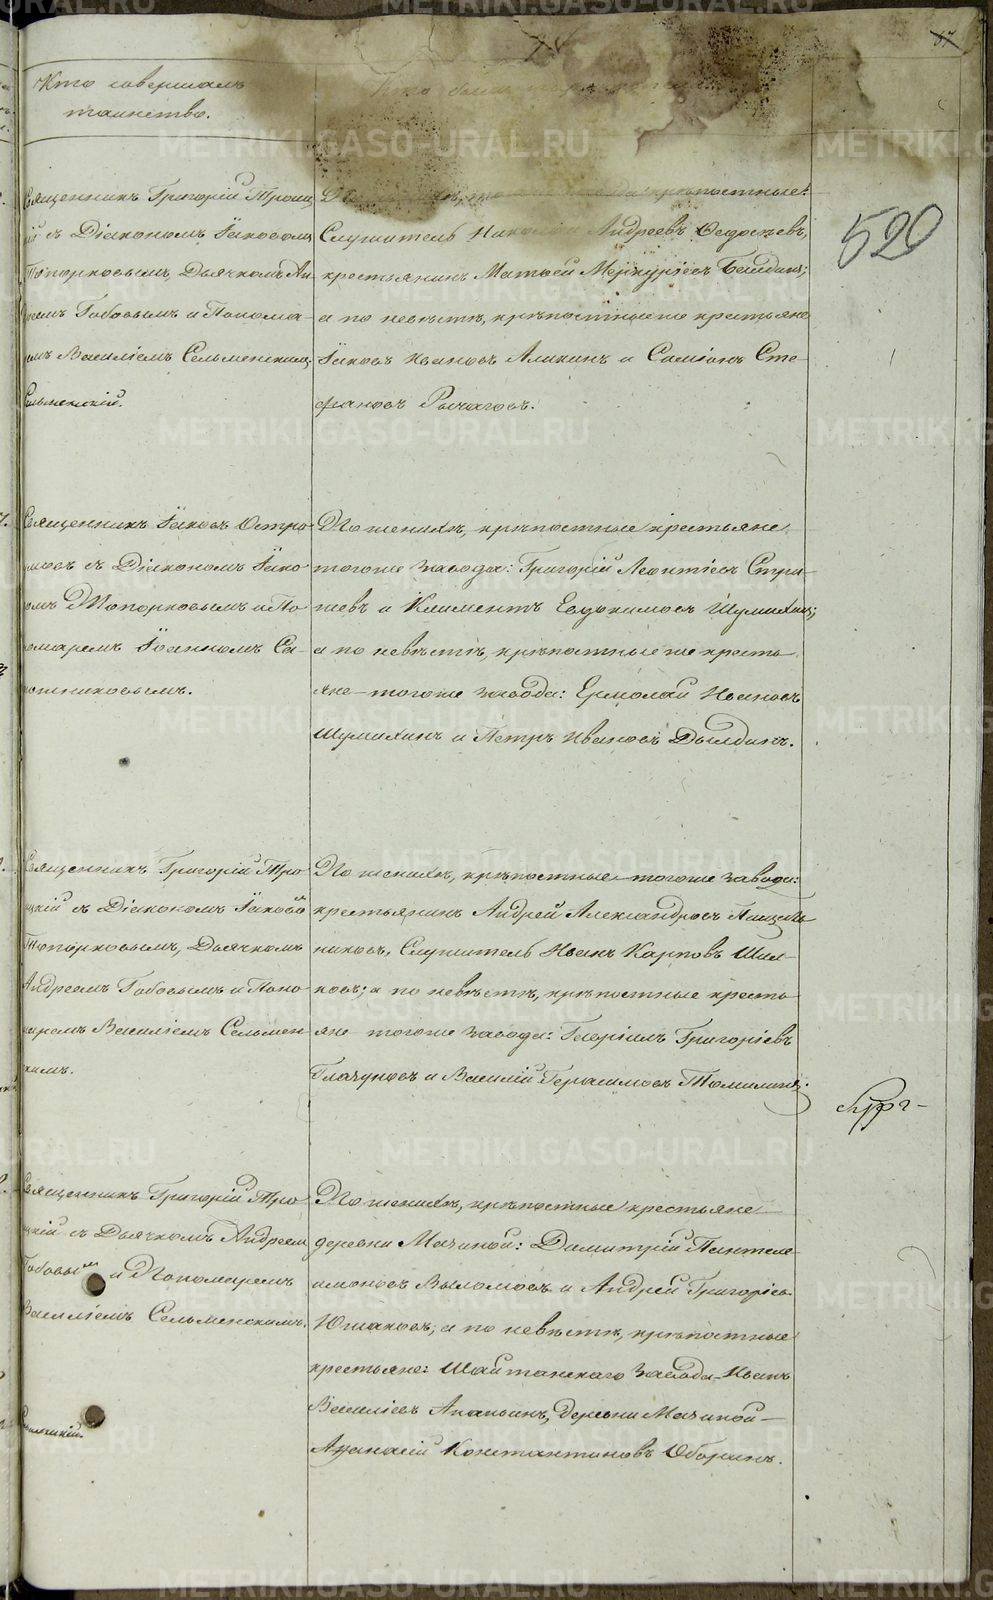 87
Кто совершалъ
таинство.
Кто были
520
Священникъ Григорій Троиц
кій съ Діакономъ Іаковомъ
Топорковымъ, Дьячкомъ Ан
дреемъ Бабовымъ и Понома
ремъ Василіемъ Сельменским
Сельменскій.
крѣпостные:
Служитель Николай Андреевъ Ѳедосѣевъ,
крестьянинъ Матѳей Меркурьевъ
а по невѣстѣ, крѣпостные же крестьяне
Іаковъ Ивановъ Аликинъ и Симіонъ Сте-
фановъ Рычаговъ.
Священникъ Іаковъ Остро
умовъ съ Діакономъ Іако
вомъ Топорковымъ и По
номаремъ Іоанномъ Са-
пожниковымъ.
По женихѣ, крѣпостные крестьяне
тогоже завода: Григорій Леонтіевъ Стри-
жевъ и Климентъ Евдокимовъ Шумихинъ;
а по невѣстѣ, крѣпостные же кресть
яне тогоже завода: Ермолай Ивановъ
Шумихинъ и Петръ Ивановъ Дылдинъ.
Священникъ Григорій Тро
ицкій съ Діакономъ Іаково
Топорковымъ, Дьячкомъ
Андреемъ Бабовымъ и Поно
маремъ Василіемъ Сельмен
скимъ.
По женихѣ, крѣпостные тогоже завода:
крестьянинъ Андрей Александровъ Пищаль
никовъ, Служитель Иванъ Карповъ Шил-
ковъ; а по невѣстѣ, крѣпостные кресть
яне тогоже завода: Георгій Григоріевъ
Глачуновъ и Василій Герасимовъ Томилинъ.
Священникъ Григорій Тро
ицкій съ Дьячкомъ Андреем
Бабовымъ и Пономаремъ
Василіемъ Сельменскимъ.
По женихѣ, крѣпостные крестьяне
деревни Мачиной: Димитрій Пантеле-
имоновъ Выломовъ и Андрей Григоріев
Южаковъ; а по невѣстѣ, крѣпостные
крестьяне: Шайтанскаго завода Иванъ
Василіевъ Ананьинъ, деревни Мачиной
Аѳанасій Константиновъ Оборинъ.